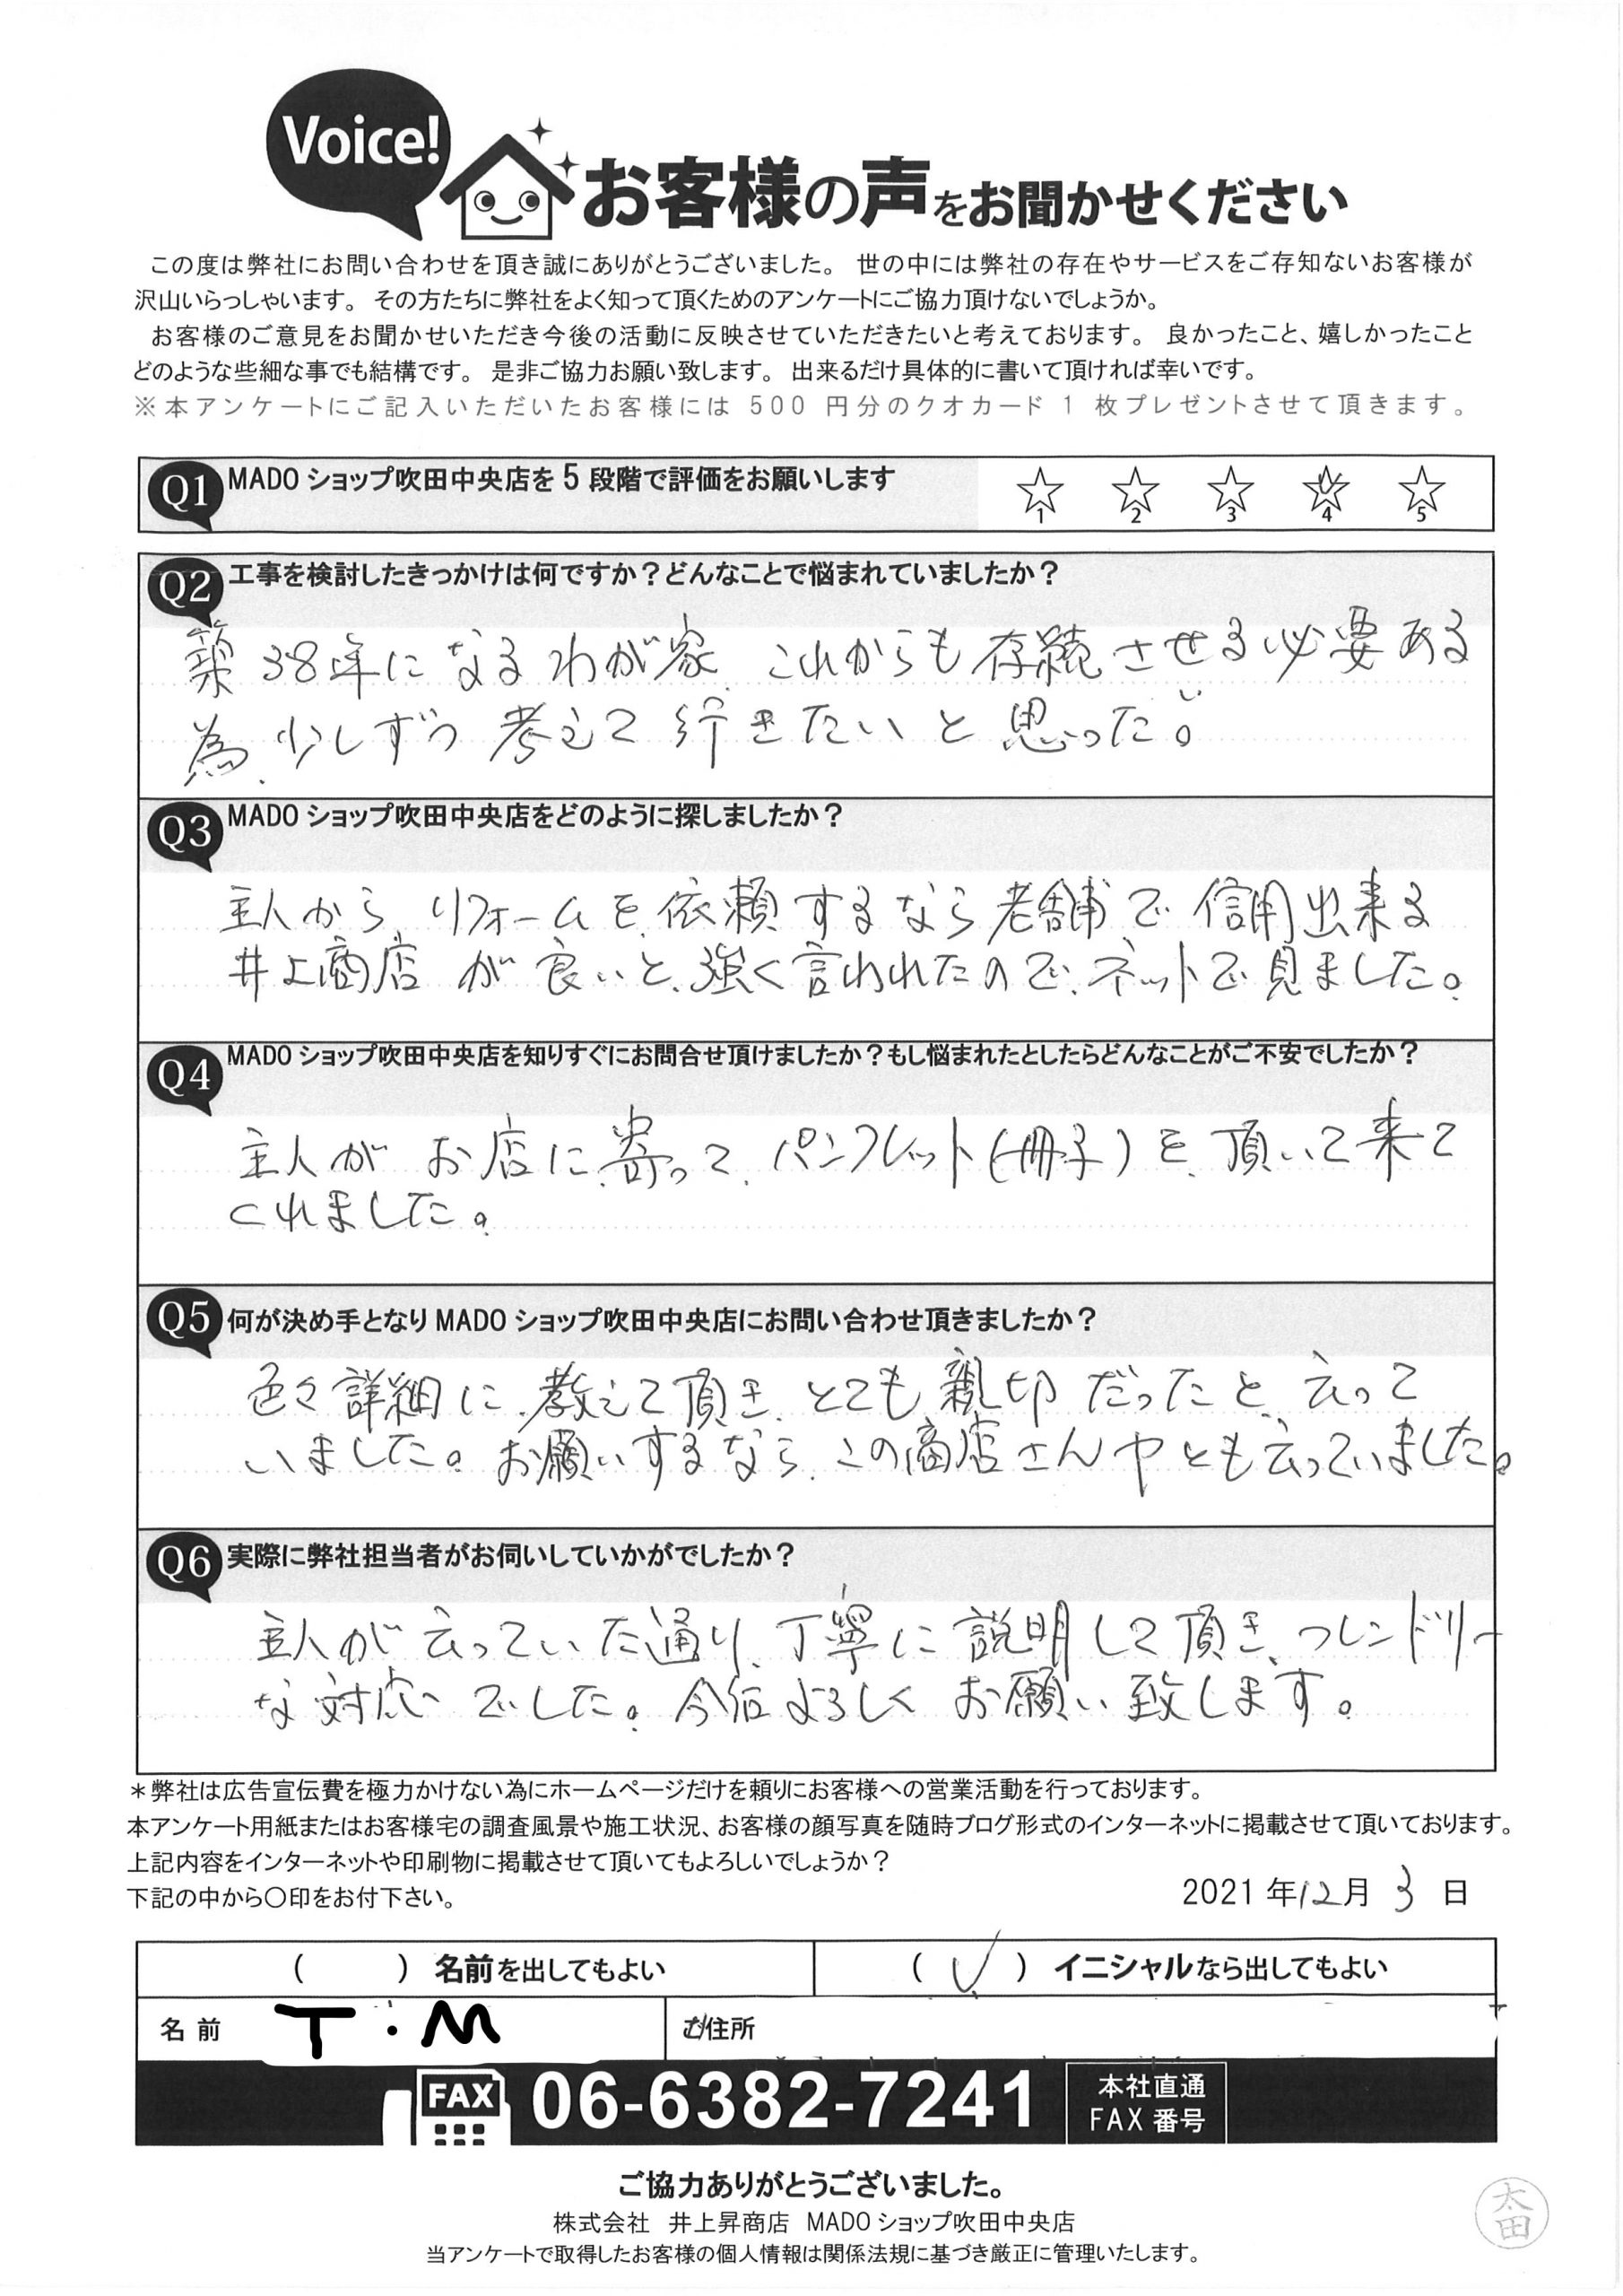 Voice!
お客様の声をお聞かせください
この度は弊社にお問い合わせを頂き誠にありがとうございました。 世の中には弊社の存在やサービスをご存知ないお客様が
沢山いらっしゃいます。 その方たちに弊社をよく知って頂くためのアンケートにご協力頂けないでしょうか。
お客様のご意見をお聞かせいただき今後の活動に反映させていただきたいと考えております。 良かったこと、嬉しかったこと
どのような些細な事でも結構です。 是非ご協力お願い致します。 出来るだけ具体的に書いて頂ければ幸いです。
※本アンケートにご記入いただいたお客様には 500 円分のクオカード 1 枚プレゼントさせて頂きます。
Q1 MADO ショップ吹田中央店を 5 段階で評価をお願いします ☆1 ☆2 ☆3 ☆4 ☆5
Q2 工事を検討したきっかけは何ですか？どんなことで悩まれていましたか？
築38年になるわが家、これからも存続させる必要ある
為、少しずつ考えて行きたいと思った。
Q3 MADO ショップ吹田中央店をどのように探しましたか？
主人から、リフォームを依頼するなら老舗で信用出来る
井上商店が良いと、強く言われたので、ネットで見ました。
Q4 MADO ショップ吹田中央店を知りすぐにお問合せ頂けましたか？もし悩まれたとしたらどんなことがご不安でしたか？
主人がお店に寄って、パンフレット(冊子)を頂いて来て
くれました。
Q5 何が決め手となり MADO ショップ吹田中央店にお問い合わせ頂きましたか？
色々詳細に教えて頂き、とても親切だったと、云って
いました。お願いするなら、この商店さんやとも云っていました。
Q6 実際に弊社担当者がお伺いしていかがでしたか？
主人が云っていた通り、丁寧に説明して頂き、フレンドリー
な対応でした。今后よろしくお願い致します。
＊弊社は広告宣伝費を極力かけない為にホームページだけを頼りにお客様への営業活動を行っております。
本アンケート用紙またはお客様宅の調査風景や施工状況、お客様の顔写真を随時ブログ形式のインターネットに掲載させて頂いております。
上記内容をインターネットや印刷物に掲載させて頂いてもよろしいでしょうか？
下記の中から〇印をお付下さい。
2021 年12月 3 日
( ) 名前を出してもよい (✓) イニシャルなら出してもよい
名 前 T・M 住所
FAX 06-6382-7241 本社直通
FAX 番号
ご協力ありがとうございました。
株式会社 井上昇商店 MADO ショップ吹田中央店
当アンケートで取得したお客様の個人情報は関係法規に基づき厳正に管理いたします。
太田